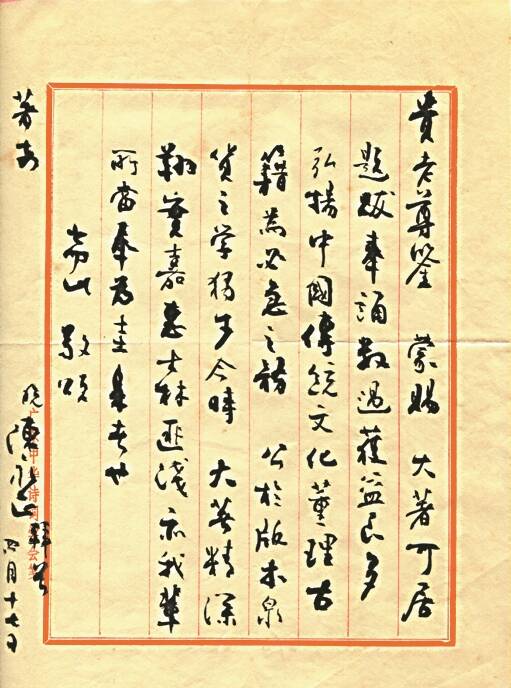 貴老尊鑒　蒙賜　大著可居
題跋奉誦數過獲益良多
弘揚中國傳統文化董理古
籍為必急之務　公於版本泉
貨之学獨步今時　大著精深
翔實嘉惠士林匪淺亦我輩
所當奉為圭臬者也
耑此　敬頌
著安
晚　陳永正拜首
四月十七日